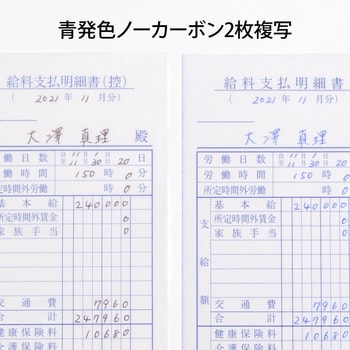 青発色ノーカーボン2枚複写
給料支払明細書(控)
( 2021 年 11 月分)
大澤 真理 殿
労働日数 自 11月 1日 至 11月 30日 20 日
労働時間 150 時 0 分
所定時間外労働 時 0 分
基本給 240000
所定時間外賃金 0
家族手当 0
交通費 7960
合計 247960
健康保険料 10680
介護保険料 0
給料支払明細書
( 2021 年 11 月分)
大澤 真理
労働日数 自 11月 1日 至 11月 30日 20
労働時間 150 時 0
所定時間外労働 時 0
支給額
基本給 240000
所定時間外賃金 0
家族手当 0
交通費 7960
合計 247960
健康保険料 10680
介護保険料 0